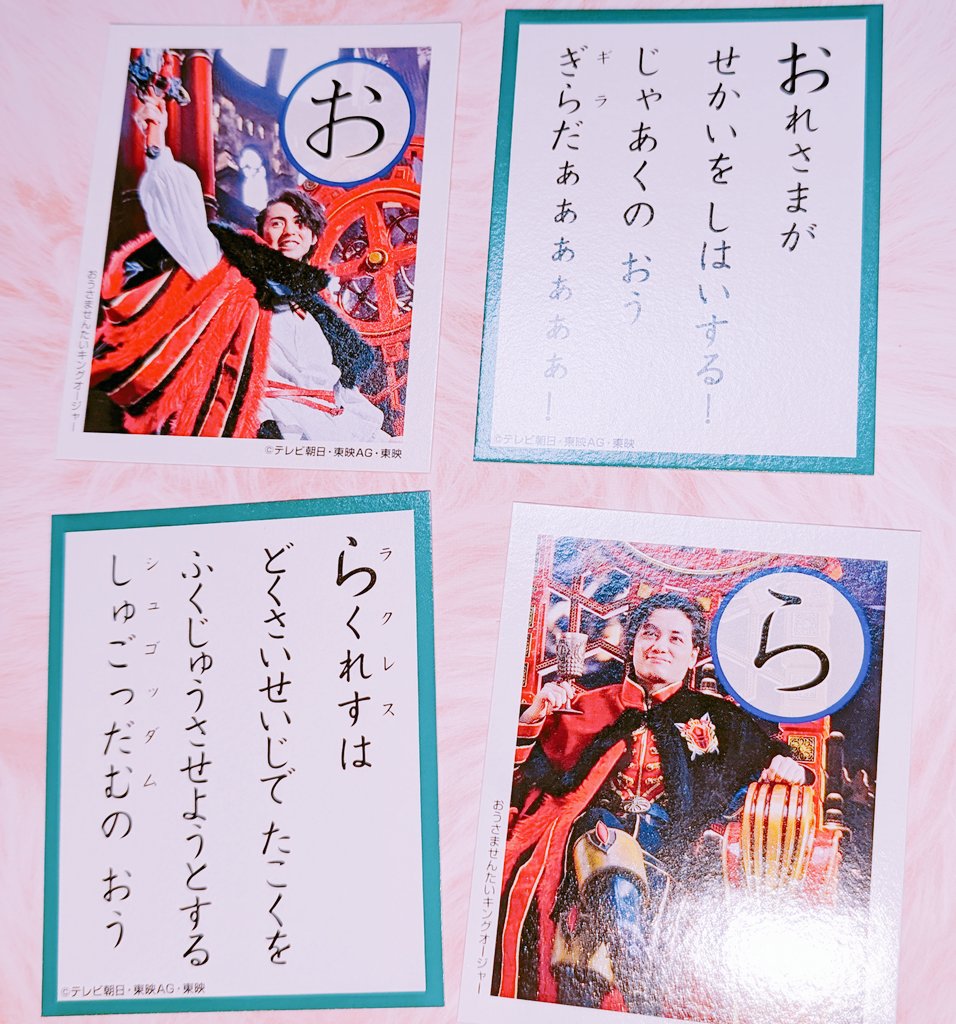 お
おうさませんたいキングオージャー
©テレビ朝日・東映AG・東映
おれさまが
せかいをしはいする!
じゃあくの おう
ギラ
ぎらだぁぁぁぁぁぁ!
©テレビ朝日・東映AG・東映
ラクレス
らくれすは
どくさいせいじで たこくを
ふくじゅうさせようとする
シュゴッダム
しゅごっだむの おう
©テレビ朝日・東映AG・東映
ら
おうさませんたいキングオージャー